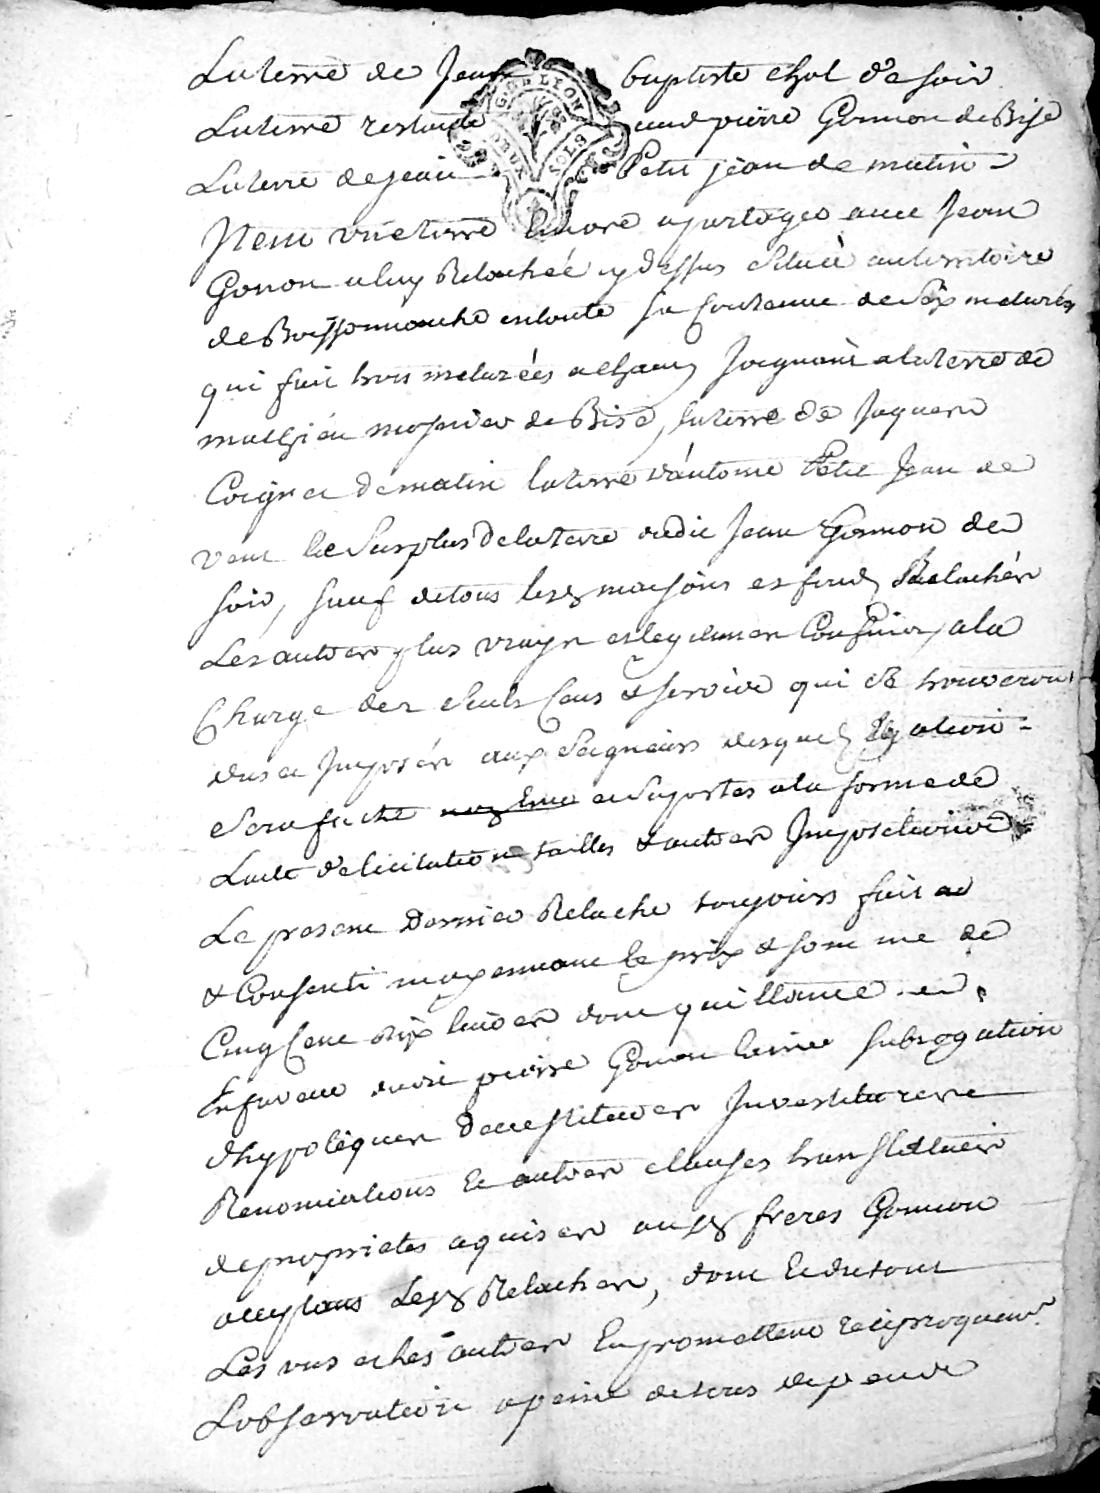 La terre de Jean baptiste chol de soir
La terre restante aud pierre Gonnon de Bise
La terre de jean Petit jean de matin
Item une terre Encore a partager avec Jean
Gonon a luy Relachée cy dessus située au territoire
de Boissonnanche en toute sa Contenue de Six meturées
qui fait trois meturées a chacun Joignant a la terre de
mathieu de Bise, la terre de Jaquem
de matin la terre d'antoine Petit Jean de
vent le Surplus de la terre dudit Jean Gonnon de
soir, sauf de tous lesd maisons et fonds Relachés
Les autres plus vrays et legitimes Confins, a la
Charge des Seuls Cens & servive qui se trouveront
dus et Imposés aux Seigneurs desquels
Sera faite et Suportes a la forme de
Lacte de licitation tailles & autres
Le present Dernier Relache toujours fait
& Consenti moyennant le prix & somme de
Cinq Cent dix huit dont quittance
En faveur dudit pierre Gonon lainé subrogation
dhypoteques Investiture
Renonciations Et autres clauses translatives
de proprietes aquises auxd freres Gonnon
acceptans Lesd Relaches, dont Et du tout
Les uns et les autres En promettent reciproquemt
Lobservation a peine de tous depens
GEN LYON
DEUX SOLS